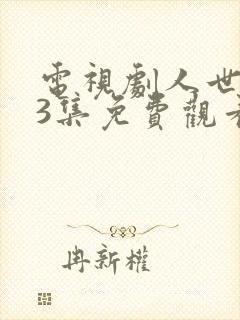 電視劇人世
3集免費觀看
冉新權